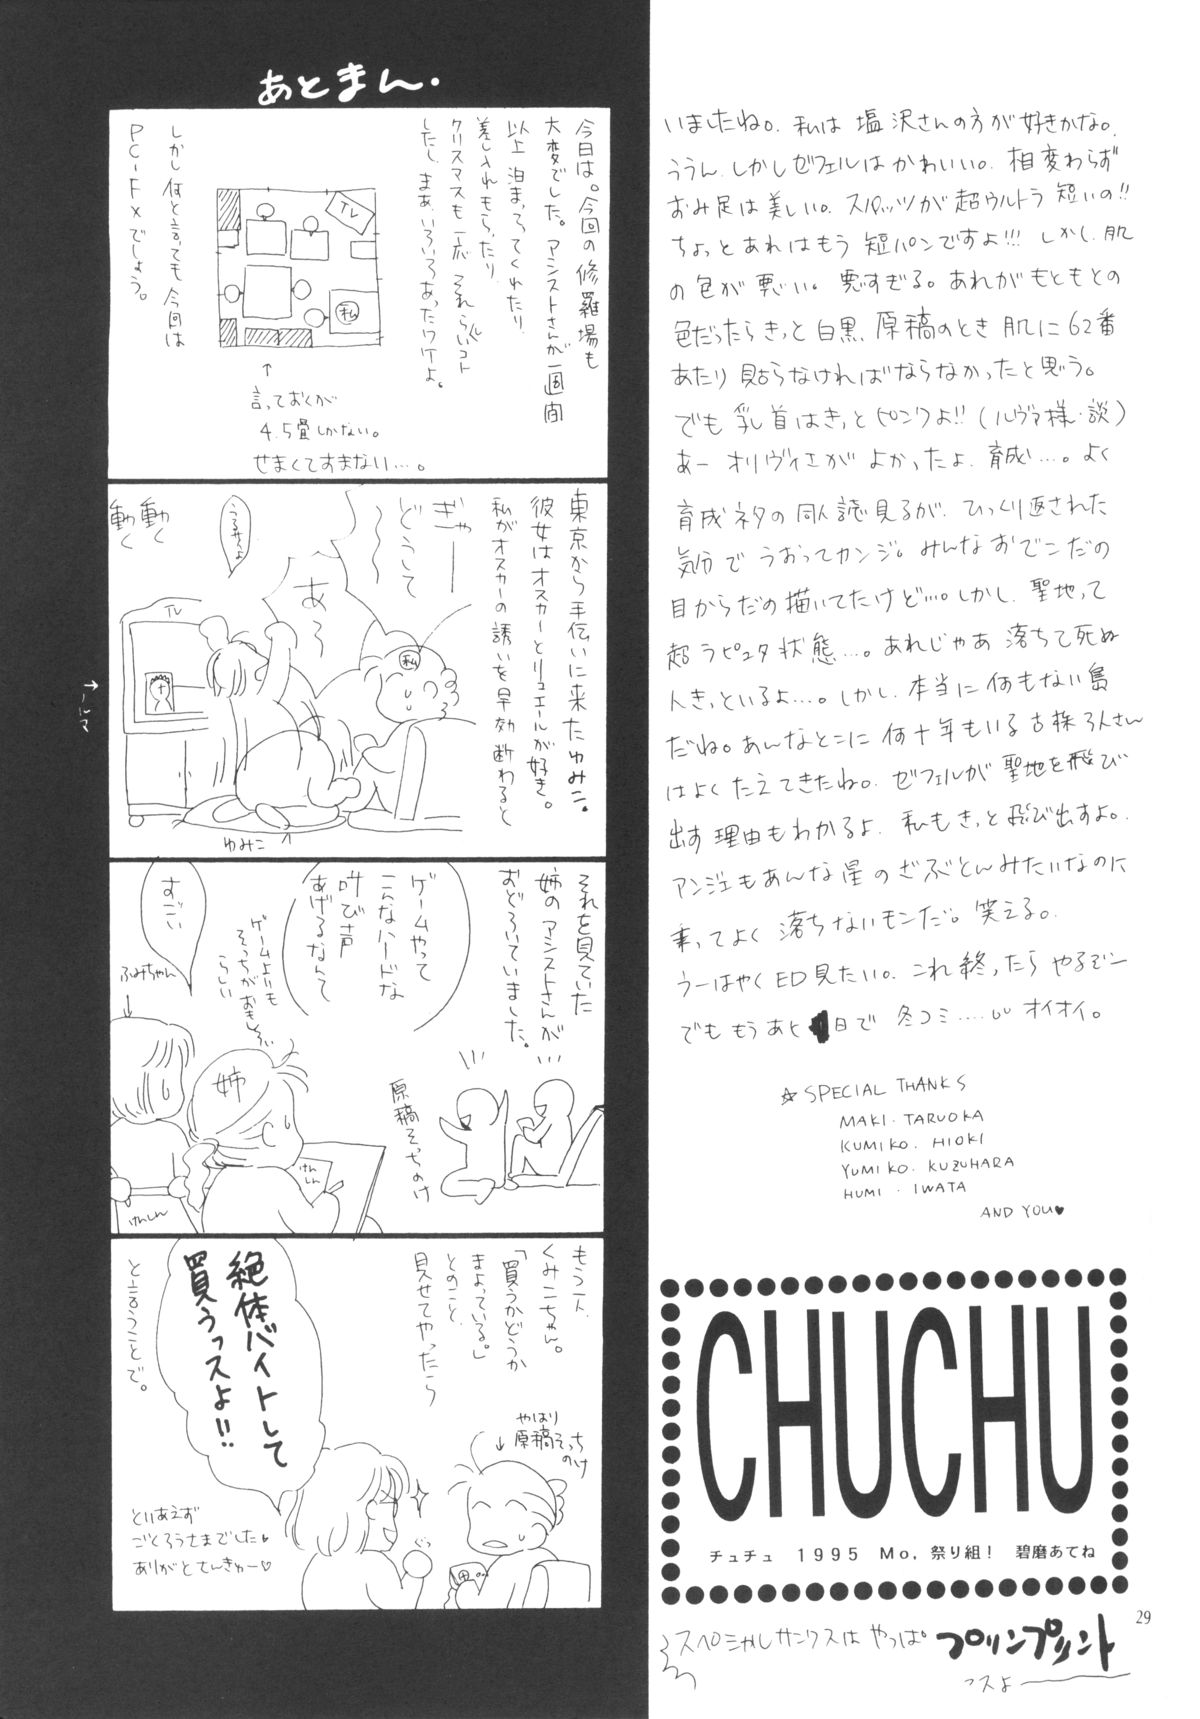 いましたね。私は塩沢さんの方が好きかな。
ううん、しかしゼフェルはかわいい。相変わらず
おみ足は美しい。スパッツが超ウルトラ短いの!!
ちょっとあれはもう短パンですよ!!! しかし、肌
の色が悪い。悪すぎる。あれがもともとの
色だったらきっと白黒原稿のとき肌に62番
あたり貼らなければならなかったと思う。
でも乳首はきっとピンクよ!! (ルヴァ様・談)
あーオリヴィエがよかったよ、育成…。よく
育成ネタの同人誌見るが、ひっくり返された
気分でうおってカンジ。みんなおでこだの
目からだの描いてたけど…。しかし、聖地って
超ラピュタ状態…。あれじゃあ落ちて死ぬ
人きっといるよ…。しかし、本当に何もない島
だね。あんなとこに何十年もいる古株3人さん
はよくたえてきたね。ゼフェルが聖地を飛び
出す理由もわかるよ、私もきっと飛び出すよ。
アンジェもあんな星のざぶとんみたいなのに
乗ってよく落ちないモンだ。笑える。
うーはやくED見たい。これ終ったらやるぞー
でももうあと1日で冬コミ……オイオイ。
☆SPECIAL THANKS
MAKI・TARUOKA
KUMIKO・HIOKI
YUMIKO・KUZUHARA
HUMI・IWATA
AND YOU♥
CHUCHU
チュチュ 1995 Mo.祭り組! 碧磨あてね
29
スペシャルサンクスはやっぱ プリンプリント
っスよ――
あとまん.
今日は。今回の修羅場も
大変でした。アシストさんが一週間
以上泊まってくれたり、
差し入れもらったり、
クリスマスも一応それらしいコト
したし、まあ、いろいろあったワケよ。
TV
私
↑
言っておくが
4.5畳しかない。
せまくてすまない…。
しかし何と言っても今回は
PC-FXでしょう。
東京から手伝いに来たゆみこ。
彼女はオスカーとリュミエールが好き。
私がオスカーの誘いを早効断わると
ぎゃーー
〜どうして
〜〜
あろ
うるせーよ
私
TV
動く
動く
→ノルマ
ゆみこ
それを見ていた
姉のアシストさんが
おどろいていました。
ゲームやって
こんなハードな
叫び声
あげるなんて
ゲームよりも
そっちがおもしろい
らしい
すごい
ふみちゃん
姉
けしん
けしん
原稿そっちのけ
もう一人、
くみこちゃん。
「買うかどうか
まよっている。」
とのこと、
見せてやったら
やはり
原稿そっち
のけ
絶体バイトして
買うっスよ!!
ぐっ
と言うことで。
とりあえず
ごくろうさまでした♥
ありがとてんきゅー♥